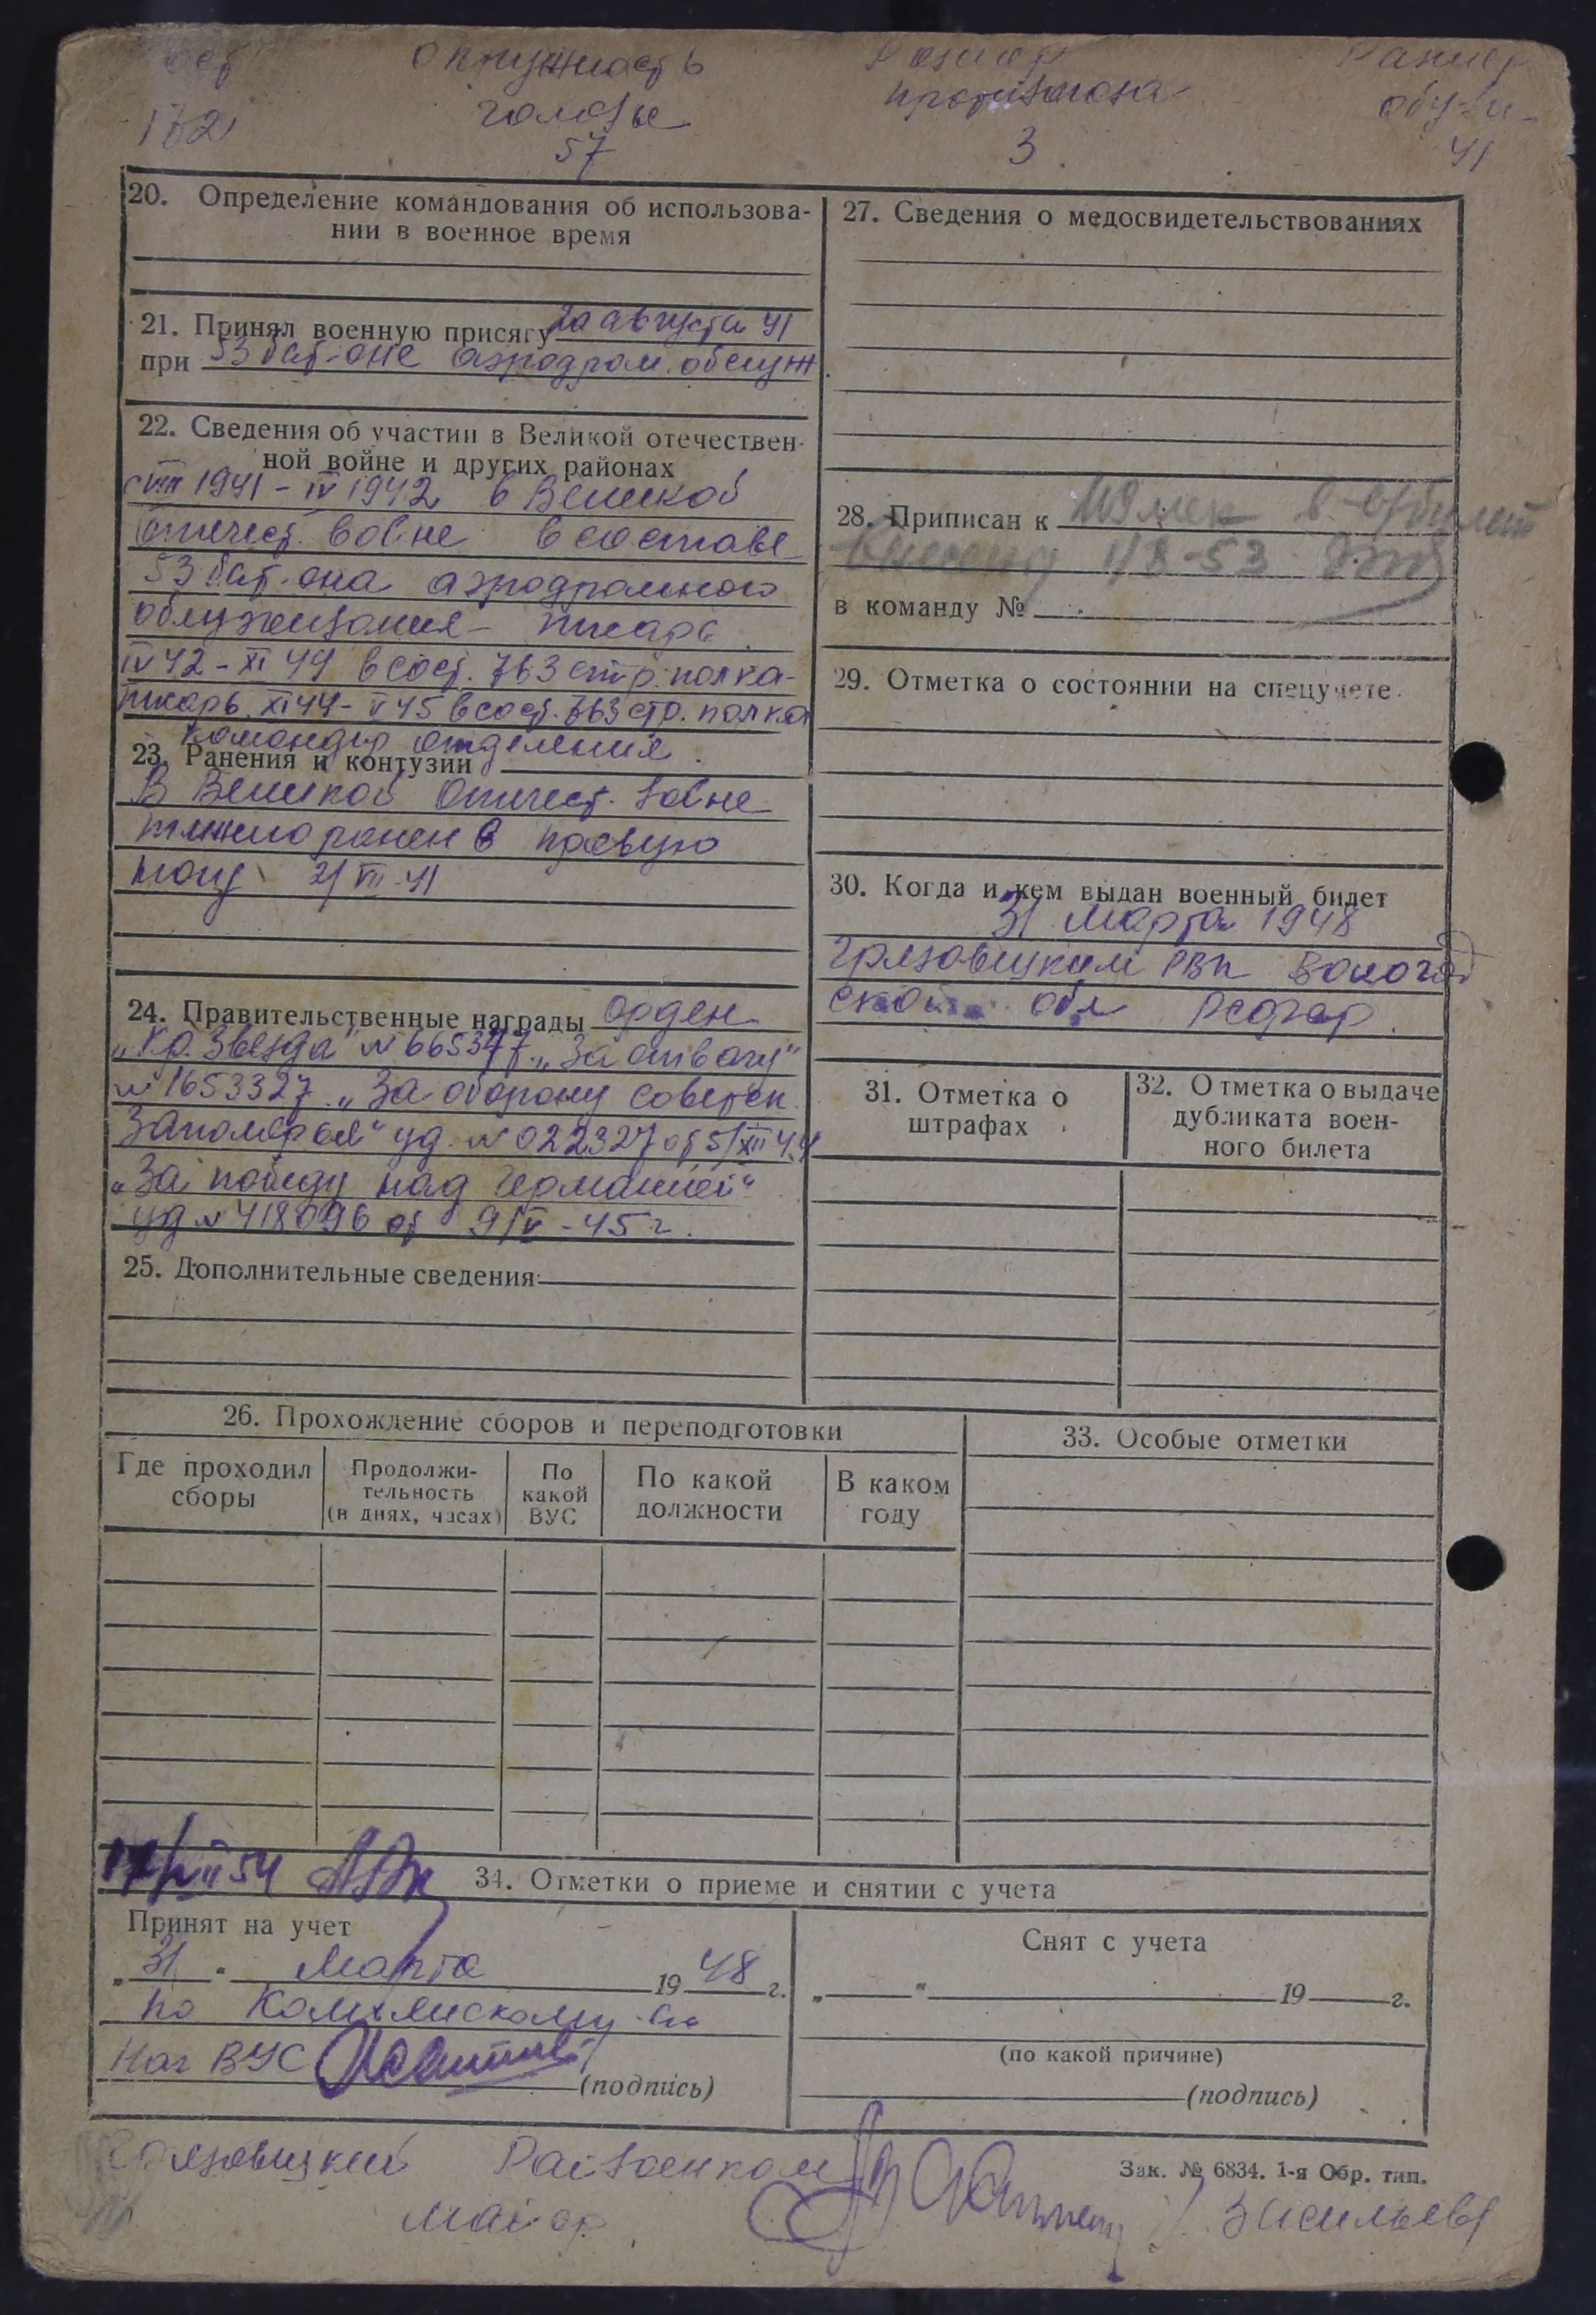 окружность
головы
57
Размер
противогаза
3
Размер
обуви
41
20. Определение командования об использова-
нии в военное время
21. Принял военную присягу 20 августа 41
при 53 бат-оне аэродром. обслуж
22. Сведения об участии в Великой отечествен-
ной войне и других районах
с VIII 1941 - IV 1942 в Великой
Отечест. войне в составе
53 бат-она аэродромного
обслуживания - писарь
IV 42 - XI 44 в сост. 763 стр. полка -
писарь. XI 44 - V 45 в сост. 763 стр. полка
командир отделения.
23. Ранения и контузии
В Великой Отечест. войне
тяжело ранен в правую
ногу 21 VII-41
24. Правительственные награды орден
„Кр. Звезда" № 665377. „За отвагу"
№ 1653327. „За оборону Советск.
Заполярья" уд. № 022327 от 5/XII 44
„За победу над Германией"
уд № 418096 от 9/V-45 г.
25. Дополнительные сведения:
27. Сведения о медосвидетельствованиях
28. Приписан к
1/8-53
в команду №
29. Отметка о состоянии на спецучете.
30. Когда и кем выдан военный билет
31 марта 1948
Грязовецким РВК Волого
ской обл РСФСР.
31. Отметка о
штрафах
32. Отметка о выдаче
дубликата воен-
ного билета
26. Прохождение сборов и переподготовки
Где проходил
сборы
Продолжи-
тельность
(в днях, часах)
По
какой
ВУС
По какой
должности
В каком
году
33. Особые отметки
54
34. Отметки о приеме и снятии с учета
Принят на учет
„31" Марта 1948 г.
по
Нач ВУС
(подпись)
Снят с учета
„ " 19 г.
(по какой причине)
(подпись)
Грязовецкий Райвоенком
майор
Зак. № 6834. 1-я Обр. тип.